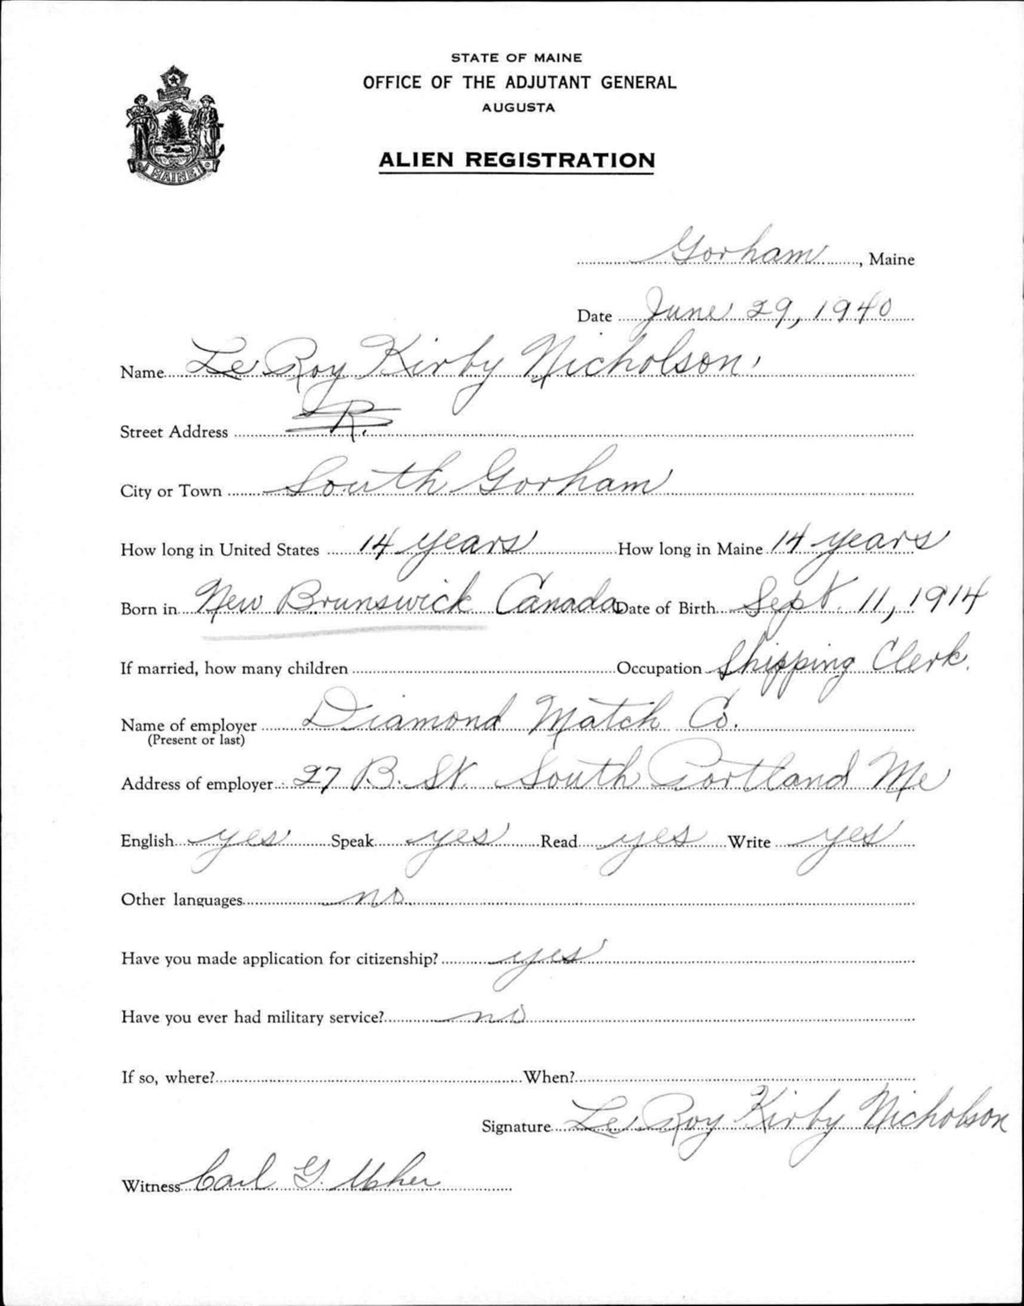 STATE OF MAINE
OFFICE OF THE ADJUTANT GENERAL
AUGUSTA
ALIEN REGISTRATION
MAINE
Gorham, Maine
Date June 29, 1940
Name Le Roy Kirby Nicholson
Street Address R.
City or Town South Gorham
How long in United States 14 years How long in Maine 14 years
Born in New Brunswick Canada Date of Birth Sept. 11, 1914
If married, how many children Occupation Shipping Clerk.
Name of employer Diamond Match Co.
(Present or last)
Address of employer 27 B. St. South Portland Me
English yes Speak yes Read yes Write yes
Other languages no
Have you made application for citizenship? yes
Have you ever had military service? no
If so, where? When?
Signature Le Roy Kirby Nicholson
Witness Carl G. Usher